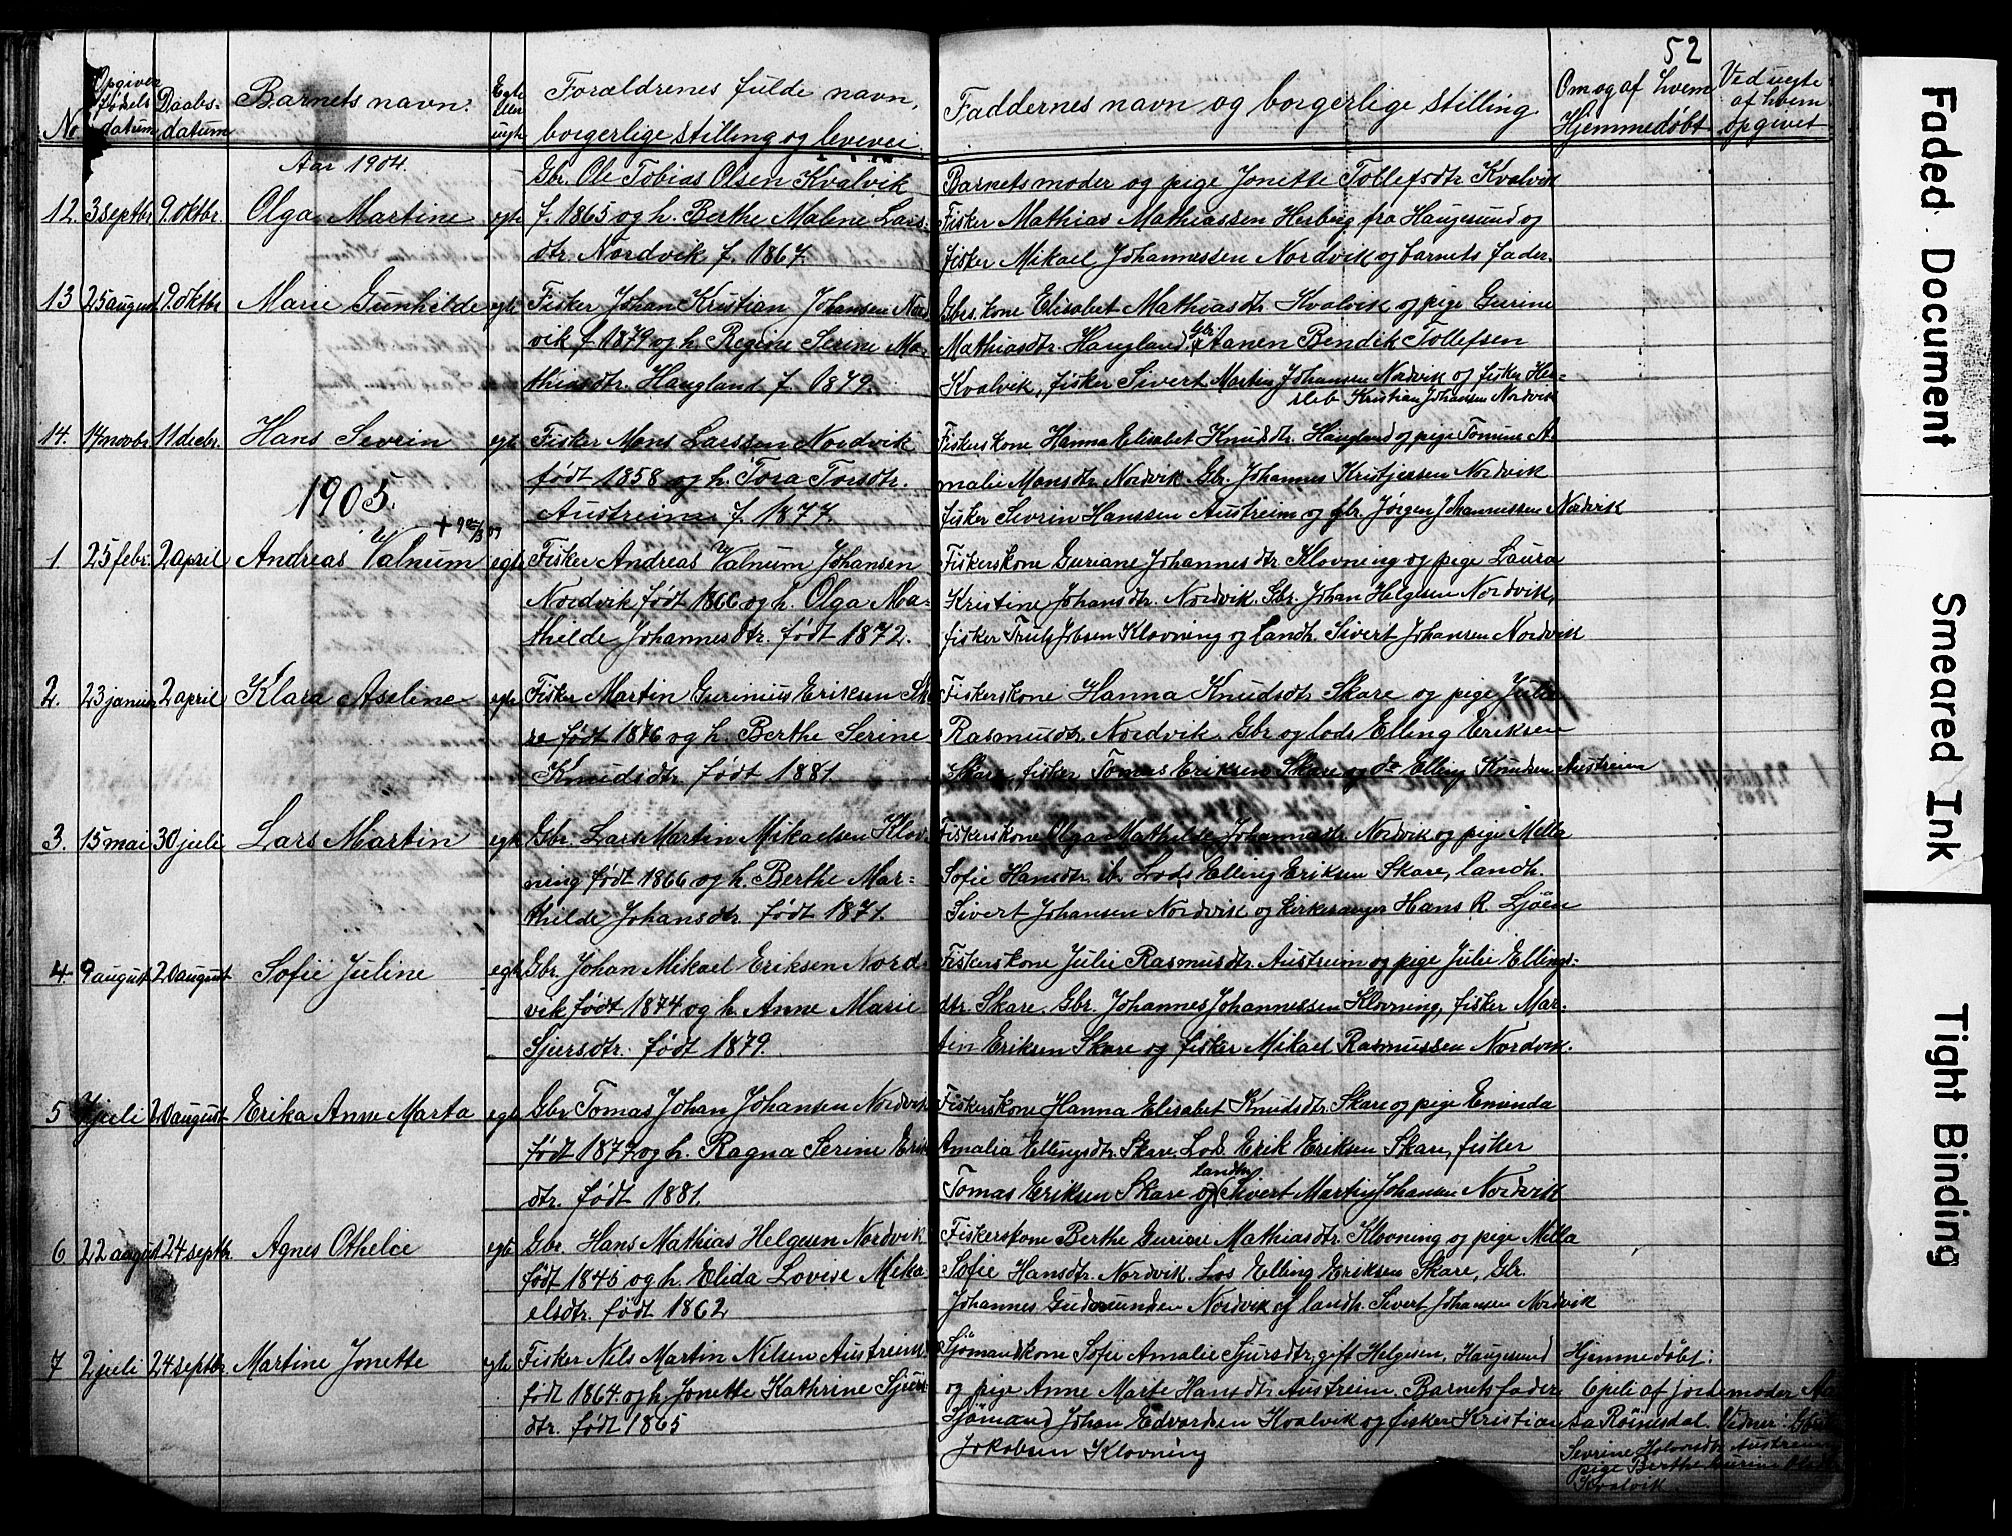 52
No
Opgiven fødsels datum
Daabs-datum
Barnets navn.
Egte eller uegte
Forældrenes fulde navn, borgerlige stilling og levevei.
Faddernes navn og borgerlige stilling
Om og af hvem Hjemmedøbt
Ved uegte af hvem opgivet
Aar 1904.
12. 3 septbr 9. oktbr. Olga Martine egte
Gbr. Ole Tobias Olsen Kvalvik
f. 1865 og h. Berthe Malene Lars-
dtr. Nordvik f. 1867.
Barnets moder og pige Jonette Tollefsdtr. Kvalvik
Fisker Mathias Mathiassen Herberg fra Haugesund og
fisker Mikael Johannessen Nordvik og barnets fader.
13 25 august 9. oktbr. Marie Gunhilde egte
Fisker Johan Kristian Johansen Nord-
vik f 1879 og h. Regine Serine Ma-
thiasdtr. Haugland f. 1879.
Gbrs. kone Elisabet Mathiasdtr Kvalvik og pige Gurine
Mathiasdtr. Haugland. Gbr Aanen Bendik Tollefsen
Kvalvik, fisker Sivert Martin Johansen Nordvik og fisker Her-
sleb Kristian Johansen Nordvik
14. 14 novbr. 11 decbr. Hans Sevrin egte
Fisker Mons Larssen Nordvik
født 1858 og h. Tora Torsdtr.
Austreim f. 1877.
Fiskerskone Hanna Elisabet Knudsdtr. Haugland og pige Tomine A-
malie Monsdtr. Nordvik. Gbr. Johannes Kristjersen Nordvik
fisker Sevrin Hanssen Austreim og gbr. Jørgen Johannessen Nordvik
1905.
1. 25 febr. 2 april Andreas Valnum egte
Fisker Andreas Valnum Johansen
Nordvik født 1866 og h. Olga Ma-
thilde Johannesdtr. født 1872.
Fiskerskone Guriane Johannesdtr. Klovning og pige Laura
Kristine Johansdtr. Nordvik. Gbr. Johan Helgesen Nordvik,
fisker Truls Jobsen Klovning og landh. Sivert Johansen Nordvik
2. 23 januar 2 april Klara Aseline egte
Fisker Martin Gurinius Eriksen Ska-
re født 1876 og h. Berthe Serine
Knudsdtr. født 1881.
Fiskerskone Hanna Knudsdtr Skare og pige Julie
Rasmusdtr. Nordvik. Gbr og lods Elling Eriksen
Skare, fisker Tomas Eriksen Skare og do Elling Knudsen Austreim
3. 15 mai 30 juli Lars Martin egte
Gbr. Lars Martin Mikaelsen Klov-
ning født 1866 og h. Berthe Mar-
thilde Johansdtr. født 1871.
Fiskerskone Olga Mathilde Johannesdtr Nordvik og pige Milla
Sofie Hansdtr. ib. Lods Elling Eriksen Skare, landh.
Sivert Johansen Nordvik og kirkesanger Hans R. Ljøen
4. 9 august 20 august Sofie Juline egte
Gbr. Johan Mikael Eriksen Nord-
vik født 1874 og h. Anne Marie
Sjursdtr. født 1879.
Fiskerskone Julie Rasmusdtr. Austreim og pige Julie Ellings-
dtr. Skare. Gbr. Johannes Johannessen Klovning, fisker Mar-
tin Eriksen Skare og fisker Mikael Rasmussen Nordvik.
5 juli 20 august Erika Anne Marta egte
Gbr Tomas Johan Johansen Nordvik
født 1877 og h. Ragna Serine Eriks
dtr. født 1881.
Fiskerskone Hanna Elisabet Knudsdtr. Skare og pige Eminda
Amalia Ellingsdtr. Skare. Lods Erik Eriksen Skare, fisker
Tomas Eriksen Skare og landh. Sivert Martin Johansen Nordvik
6 22 august 24 septbr. Agnes Othelie egte
Gbr. Hans Mathias Helgesen Nordvik
født 1845 og h. Elida Lovise Mika-
elsdtr. født 1862
Fiskerskone Berthe Gurine Mathiasdtr. Klovning og pige Milla
Sofie Hansdtr. Nordvik. Los Elling Eriksen Skare, Gbr.
Johannes Gudmundsen Nordvik og landh. Sivert Johansen Nordvik
7 2 juli 24 septbr. Martine Jonette egte
Fisker Nils Martin Nilsen Austreim
født 1864 og h. Jonette Kathrine Sjurs
dtr. født 1865
Sjömandskone Sofie Amalie Sjursdtr, gift Helgesen, Haugesund
og pige Anne Marte Hansdtr Austreim. Barnets fader
Sjömand Johan Edvardsen Kvalvik og fisker Kristian
Jokobsen Klovning
Hjemmedøbt:
6 juli af jordemoder
Röinesdal. Vidner:
Sevrine Austreim
pige Berthe Gurine
Kvalvik
Faded Document
Smeared Ink
Tight Binding